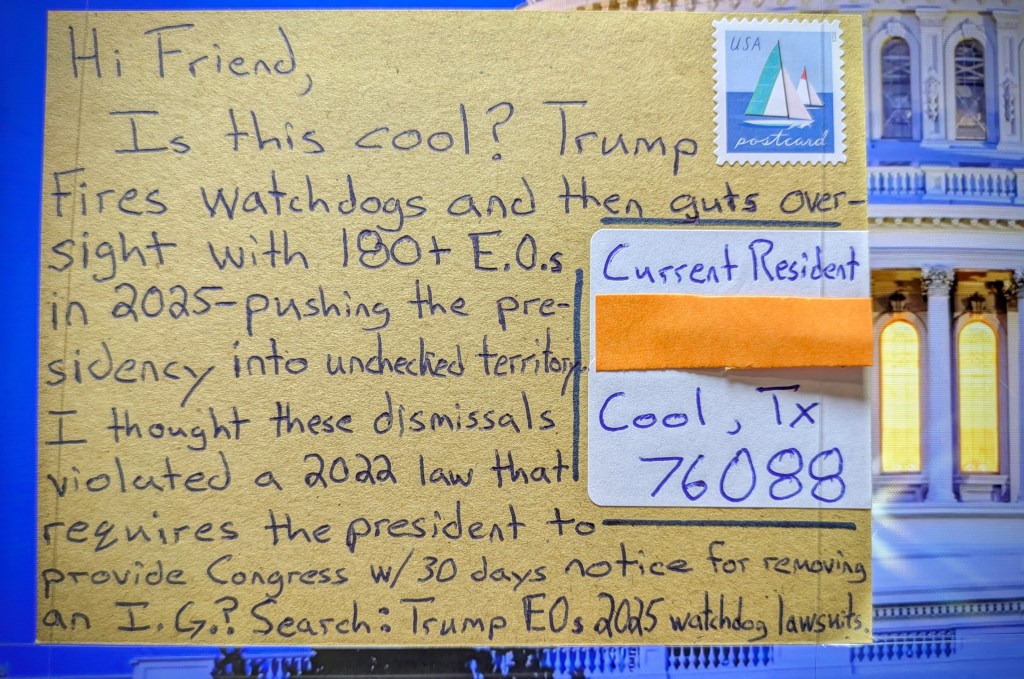 Hi Friend,
USA
postcard
Is this cool? Trump
Fires watchdogs and then guts over-
sight with 180+ E.O.s
in 2025-pushing the pre-
sidency into unchecked territory.
I thought these dismissals
violated a 2022 law that
requires the president to
provide Congress w/30 days notice for removing
an I.G.? Search: Trump EOs 2025 watchdog lawsuits.
Current Resident
Cool, Tx
76088